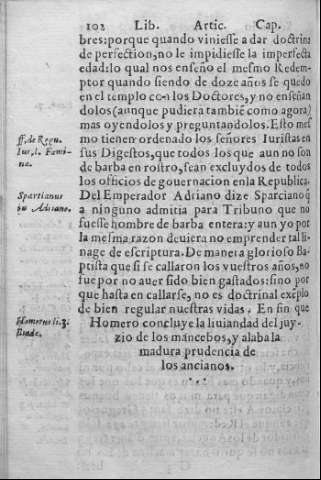 102 Lib. Artic. Cap.
bres: porque quando viniesse a dar doctrina
de perfection, no le impidiesse la imperfecta
edad: lo qual nos enseño el mesmo Redem-
ptor quando siendo de doze años se quedo
en el templo con los Doctores, y no enseñan
dolos (aunque pudiera tambiē como agora)
mas oyendolos y preguntandolos. Esto mes
ff. de Regu.
mo tienen ordenado los señores Iuristas en
lur, l. Fœmi-
sus Digestos, que todos los que aun no son
næ.
de barba en rostro, sean excluydos de todos
los officios de gouernacion en la Republica.
Spartianus
Del Emperador Adriano dize Sparciano q̄
in Adriano.
a ninguno admitia para Tribuno que no
fuesse hombre de barba entera: y aun yo por
la mesma razon deuiera no emprender tal li-
nage de escriptura. De manera glorioso Ba-
ptista que si se callaron los vuestros años, no
fue por no auer sido bien gastados: sino por
que hasta en callarse, no es doctrinal exēplo
de bien regular nuestras vidas. En fin que
Homerus li. 3.
Homero concluye la liuiandad del juy-
Iliade.
zio de los mancebos, y alaba la
madura prudencia de
los ancianos.